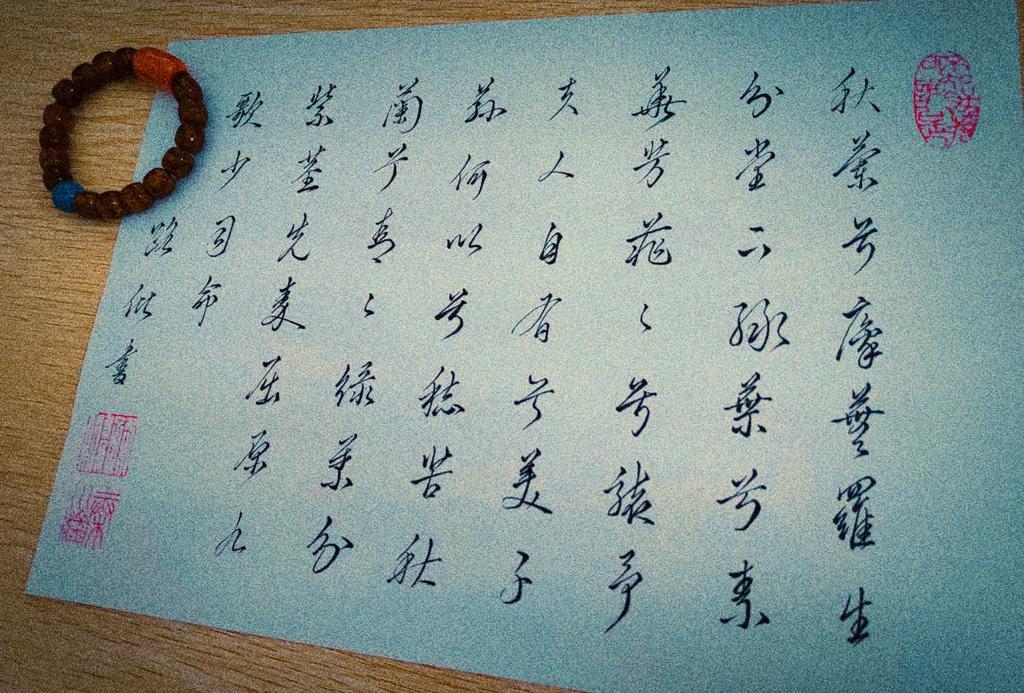 秋蘭兮麋蕪羅生
兮堂下綠葉兮素
華芳菲〻兮襲予
夫人自有兮美子
蓀何以兮愁苦秋
蘭兮青〻綠葉兮
紫莖先秦屈原九
歌少司命
路書